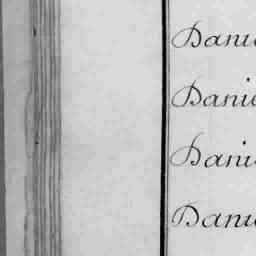 Danie
Danie
Danie
Danie